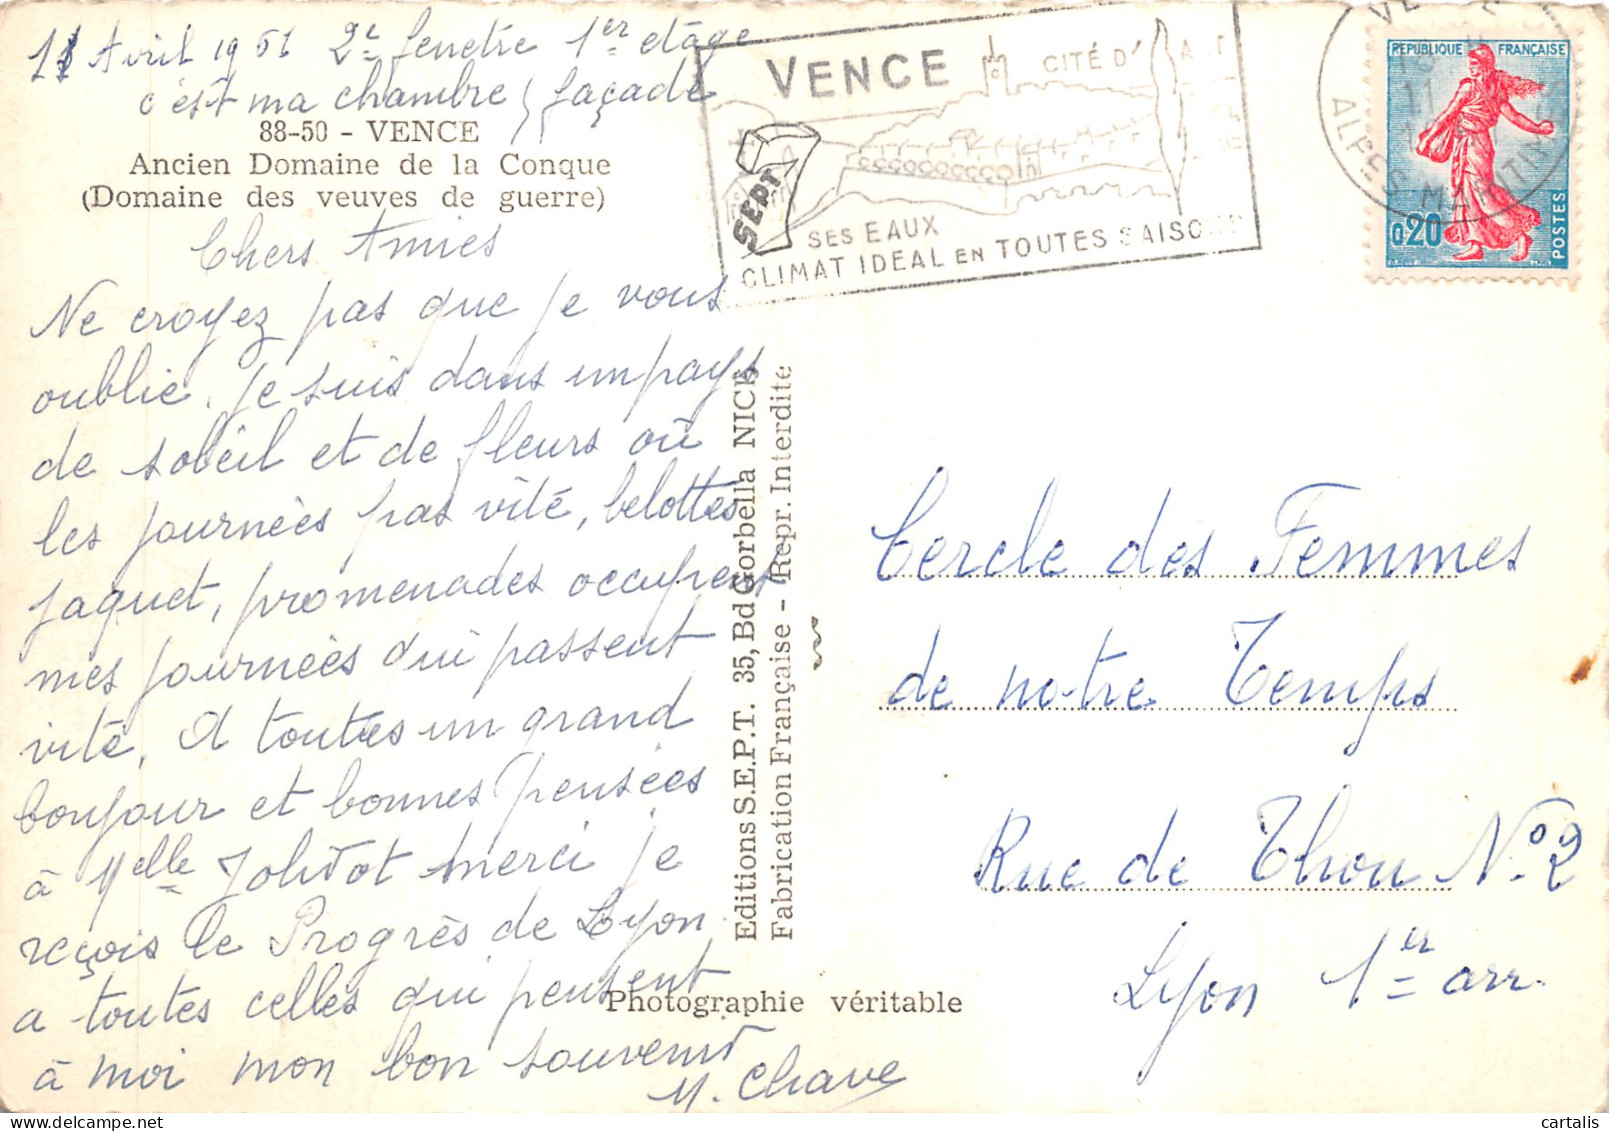 11 Avril 1961 2e fenetre 1er etage
c'est ma chambre façade
88-50 - VENCE
Ancien Domaine de la Conque
(Domaine des veuves de guerre)
Chers Amies
Ne croyez pas que je vous
oublie. Je suis dans un pays
de soleil et de fleurs où
les journées pas vité, belottes
jaquet, promenades occupent
mes journées qui passent
vité. A toutes un grand
bonjour et bonnes pensées
à Melle merci je
reçois le Progrès de Lyon.
a toutes celles qui pensent
à moi mon bon souvenir
M. Chave
Editions S.E.P.T. 35, Bd Gorbella NICE
Fabrication Française - Repr. Interdite
Photographie véritable
VENCE
CITÉ D'ART
SEPT
SES EAUX
CLIMAT IDEAL EN TOUTES SAISONS
VENCE
ALPES MARITIMES
REPUBLIQUE FRANÇAISE
0,20
POSTES
Cercle des Femmes
de notre Temps
Rue de Thou No 2
Lyon 1er arr.
cartalis